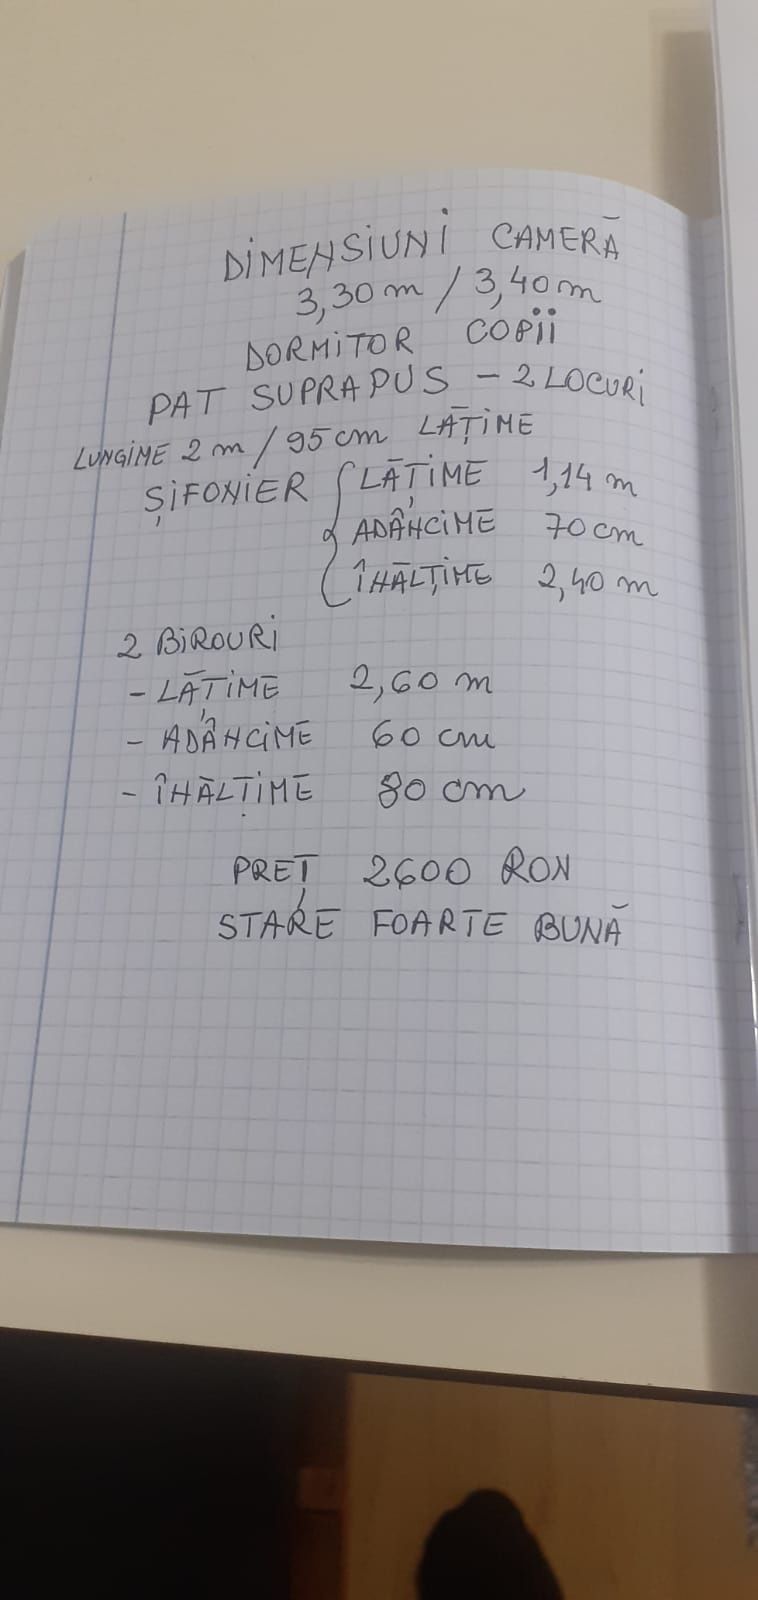 DIMENSIUNI CAMERĂ
3,30 m / 3,40 m
DORMITOR COPII
PAT SUPRAPUS - 2 LOCURI
LUNGIME 2 m / 95 cm LĂȚIME
ȘIFONIER { LĂȚIME 1,14 m
ADÂNCIME 70 cm
ÎNĂLȚIME 2,40 m
2 BIROURI
- LĂȚIME 2,60 m
- ADÂNCIME 60 cm
- ÎNĂLȚIME 80 cm
PREȚ 2600 RON
STARE FOARTE BUNĂ